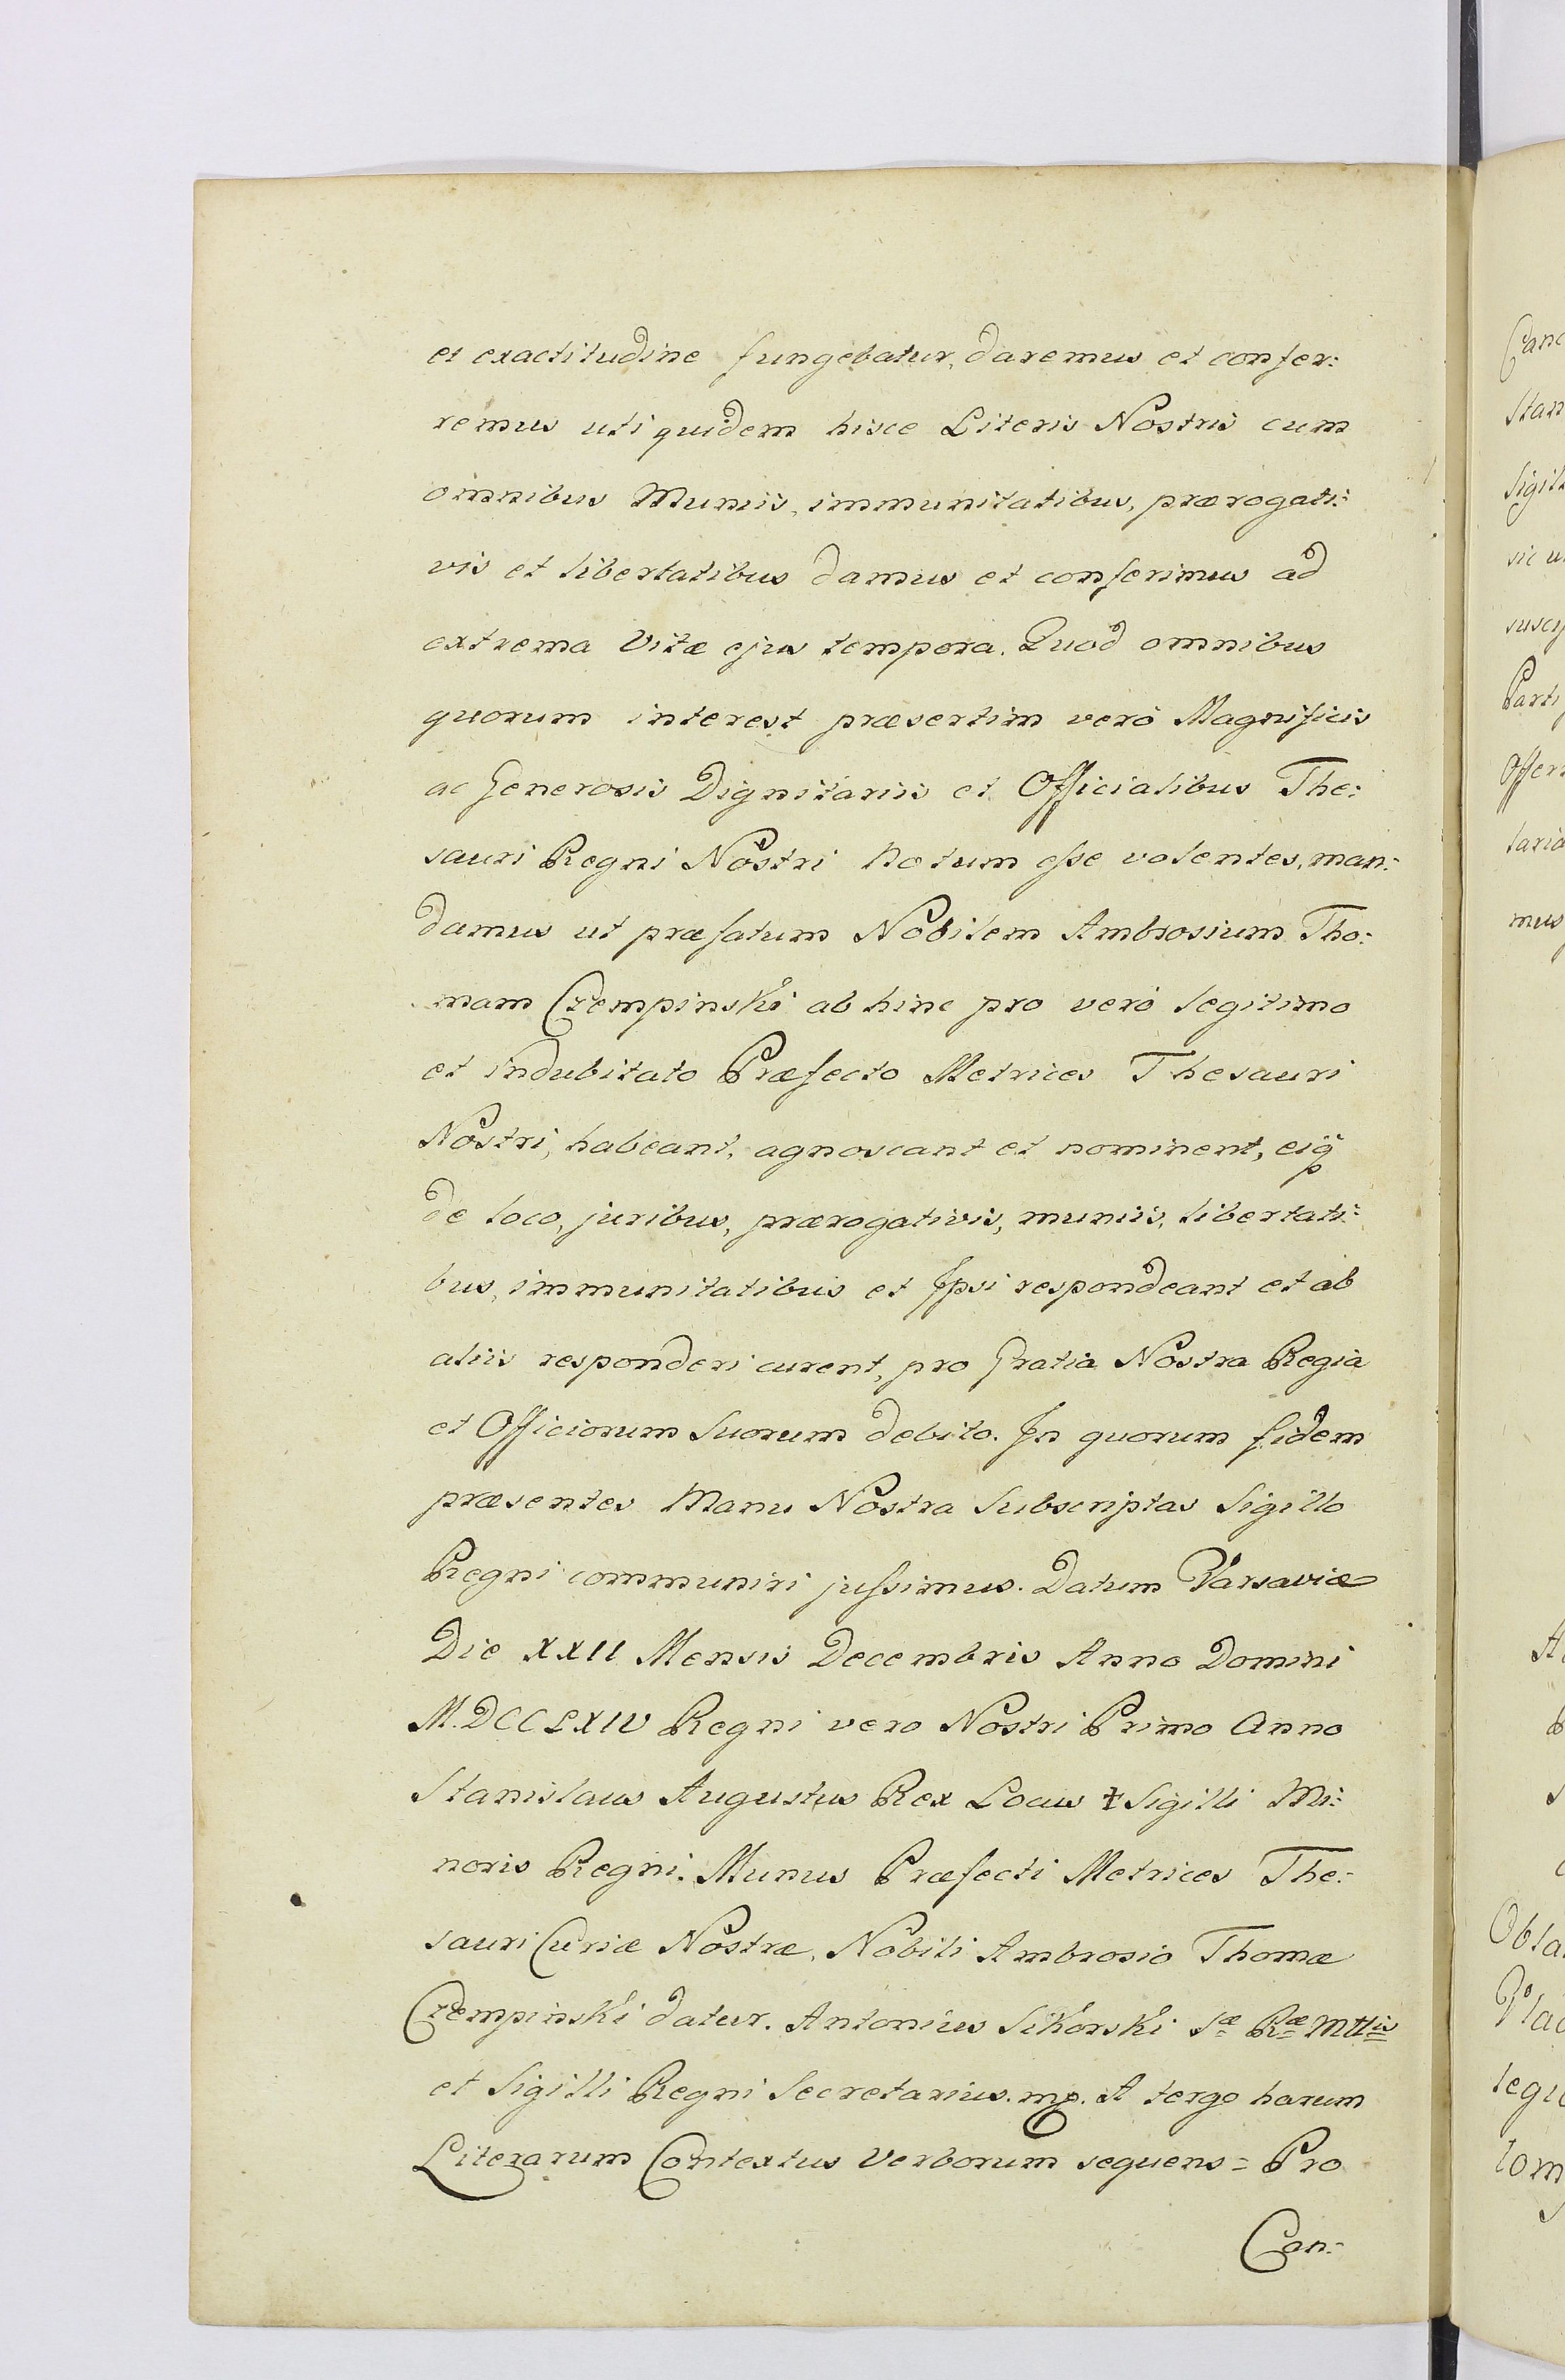 et exactitudine fungebatur, daremus et confer:
remus uti quidem hisce Literis Nostris cum
omnibus Muniis, immunitatibus, prærogati:
vis et libertatibus damus et conferimus ad
extrema Vitæ ejus tempora. Quod omnibus
quorum interest præsertim verò Magnificis
ac Generosis Dignitariis et Officialibus The:
sauri Regni Nostri Notum esse volentes, man:
damus ut præfatum Nobilem Ambrosium Tho:
mam Czempinski ab hinc pro verò legitimo
et indubitato Præfecto Metrices Thesauri
Nostri, habeant, agnoscant et nominent, eiq̃
de loco, juribus, prærogativis, muniis, libertati:
bus, immunitatibus et Ipsi respondeant et ab
aliis responderi curent, pro Gratia Nostra Regia
et Officiorum Suorum debito. In quorum fidem
præsentes Manu Nostra Subscriptas Sigillo
Regni communiri jussimus. Datum Varsaviæ
Die XXII Mensis Decembris Anno Domini
M.DCCLXIV Regni vero Nostri Primo Anno
Stanislaus Augustus Rex Locus ‡ Sigilli Mi:
noris Regni. Munus Præfecti Metrices The:
sauri Curiæ Nostræ, Nobili Ambrosio Thomæ
Czempinski datur. Antonius Sikorski Sæ Ræ Mttis
et Sigilli Regni Secretarius. mp. A tergo harum
Literarum Contextus Verborum sequens = Pro
Can:
Canc
Stan
Sigil
sic u
Parti
Offer
taria
mus
Obla
legi
tom